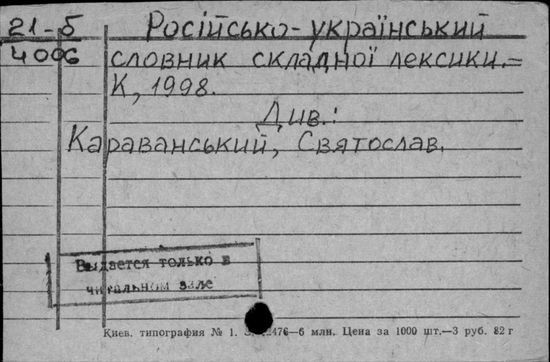 21-б
4006
Російсько-український
словник складної лексики.–
К, 1998.
Див.:
Караванський, Святослав.
Выдается только в
читальном зале
Киев. типография № 1. 2476—6 млн. Цена за 1000 шт.—3 руб. 82 г